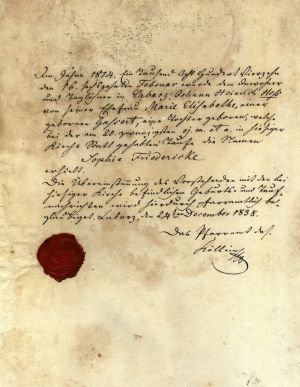 Im Jahre 1814. Ein Tausend Acht Hundert Vierzehn
den 16. sechszehnten Februar wurde dem Einwohner
und Tagelöhner in Johann Heinrich
von seiner Ehefrau Marie Elisabethe, einer
geborenen eine Tochter geboren, welche
bei der am 20. zwanzigsten ej. m. et a. in hiesiger
Kirche Statt gehabten Taufe die Namen
Sophie Friedericke
erhielt.
Die Übereinstimmung des Vorstehenden mit den bei
hiesiger Kirche befindlichen Geburts und Tauf
nachrichten wird hierdurch pfarramtlich be
glaubiget. den 24ten December 1838.
Das Pfarramt das.